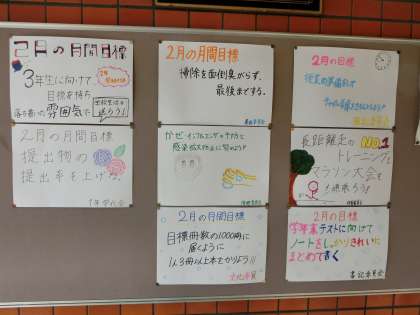 2月の月間目標
3年生に向けて
目標を持ち
落ち着いた雰囲気で
送ろう!
2月の月間目標
掃除を面倒臭がらず、
最後までする。
2月の目標
2月の月間目標
提出物の
提出率を上げる。
かぜ・インフルエンザの予防と
感染拡大防止に努めよう!
長距離走のNO.1
トレーニングで
マラソン大会を
2月の月間目標
目標冊数の1000冊に
届くように
1人3冊以上本をかりよう!!
文化委員
2月の目標
学年末テストに向けて
ノートをしっかりきれいに
まとめて書く
書記委員会